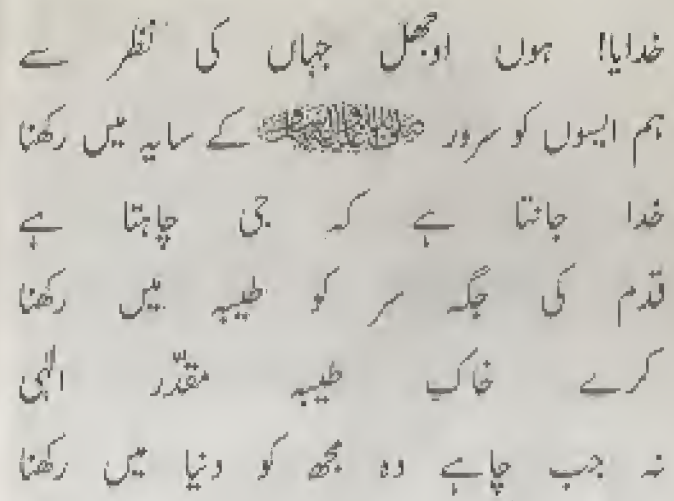 خدایا! ہوں اوجھل جہاں کی نظر سے
ہم ایسوں کو سرور کے سایہ میں رکھنا
خدا جانتا ہے کہ جی چاہتا ہے
قدم کی جگہ سر کو طیبہ میں رکھنا
کرے خاک طیبہ مقدّر الٰہی
نہ جب چاہے وہ مجھ کو دنیا میں رکھنا